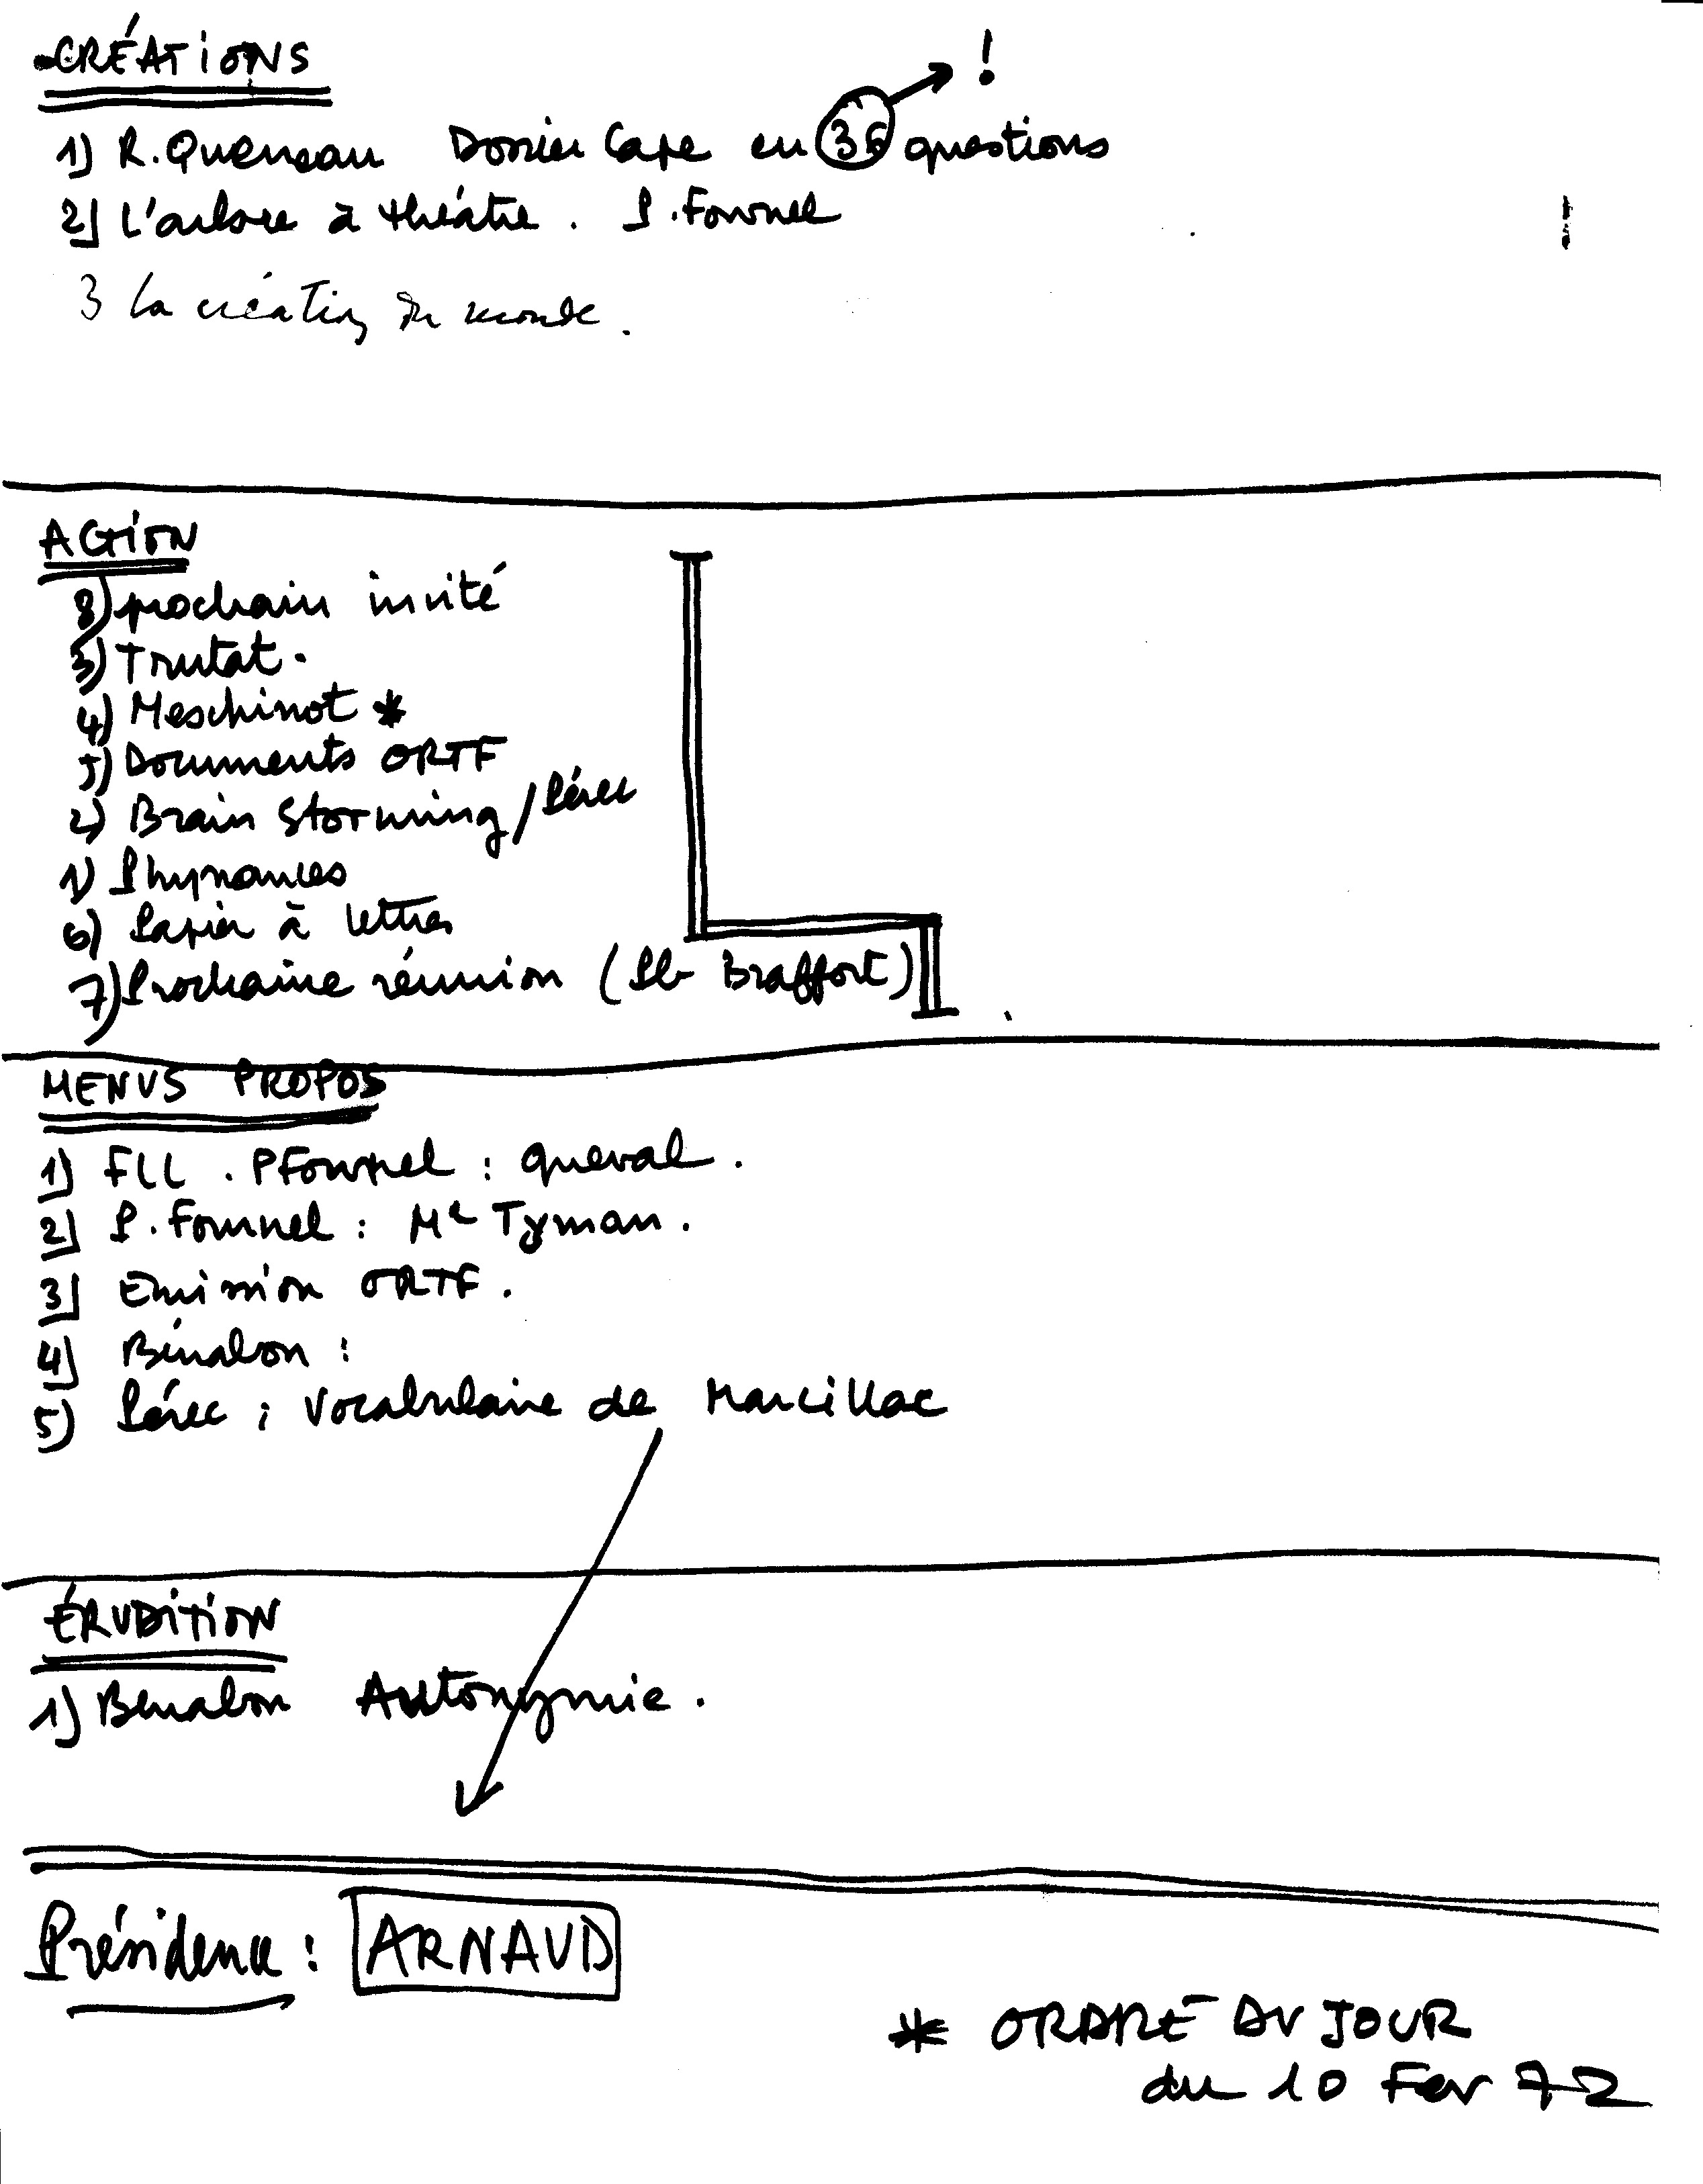 CRÉATIONS
!
1) R. Queneau Dossier Cape en 36 questions
2) L'arbre à théâtre. P. Fournel
3 La création du monde.
ACTION
8) prochain invité
3) Trutat.
4) Meschinot *
5) Documents ORTF
2) Brain Storming / Pérec
1) Phynances
6) Papier à lettres
7) Prochaine réunion (Pb Braffort)
MENUS PROPOS
1) FLL. PFournel : queval.
2) P. Fournel : Mc Tyman.
3) Emission ORTF.
4) Bénabou :
5) Pérec : Vocabulaire de Marcillac
ÉRUDITION
1) Benabou Autonymie.
Présidence : ARNAUD
* ORDRE DU JOUR
du 10 Fev 72